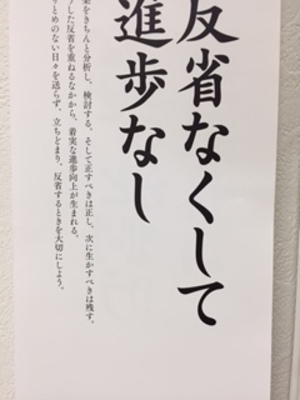 反省なくして
進歩なし
をきちんと分析し、検討する。そして正すべきは正し、次に生かすべきは残す。
した反省を重ねるなかから、着実な進歩向上が生まれる。
とめのない日々を送らず、立ちどまり、反省するときを大切にしよう。